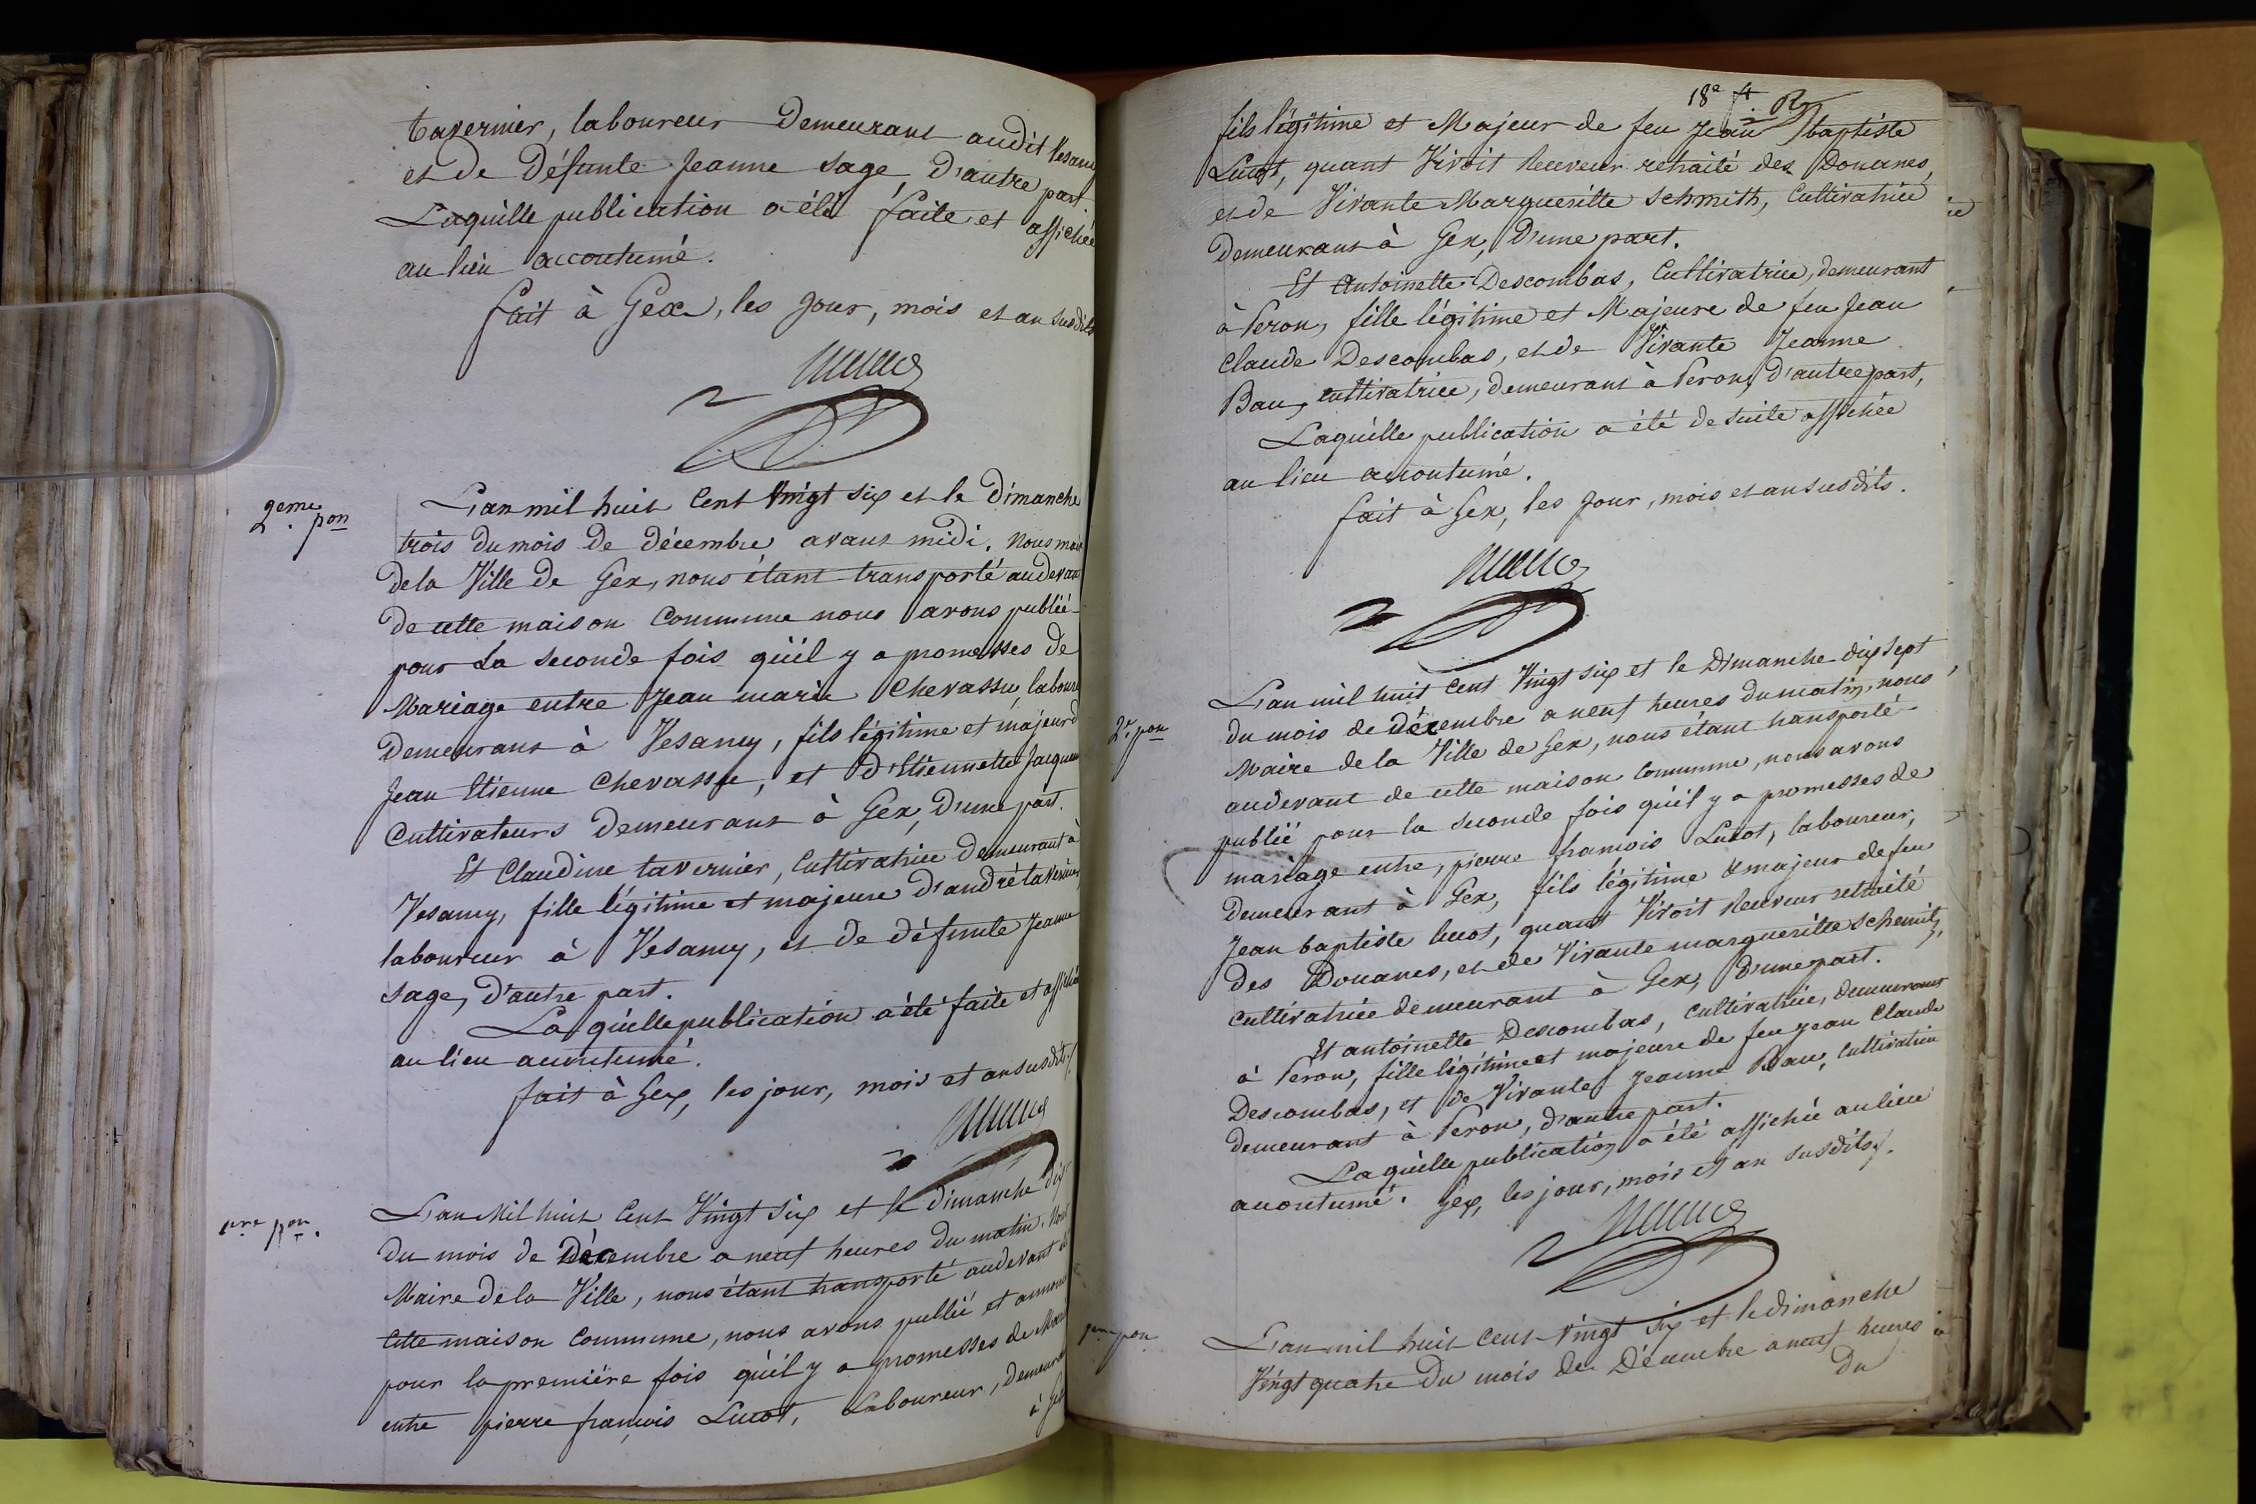 tavernier, laboureur Demeurant audit Vesancy
et de Défunte Jeanne Sage, D'autre part
Laquelle publication a été faite et affichée
au lieu accoutumé.
fait à Gex, les jour, mois et an susdits
2eme pon
L'an mil huit Cent Vingt six et le Dimanche
trois du mois de décembre avant midi. Nous maire
de la Ville de Gex, nous étant transporté au devant
De cette maison Commune nous avons publié
pour La seconde fois qu'il y a promesses de
Mariage entre Jean marie Chevassu, laboureur
Demeurant à Vesancy, fils légitime et majeur d
Jean Etienne Chevassu, et D'Etiennette Jacquem
Cultivateurs Demeurant à Gex, D'une part.
Et Claudine tavernier, Cultivatrice Demeurant à
Vesancy, fille légitime et majeure D'andré tavernier
laboureur à Vesancy, et de défunte Jeanne
Sage, D'autre part.
Laquelle publication a été faite et affichée
au lieu accoutumé.
fait à Gex, les jour, mois et an susdits.
1ere pon.
L'an Mil huit Cent Vingt Six et le dimanche dix
Du mois de Décembre a neuf heures Du matin. Nous
Maire de la Ville, nous étant transporté au devant de
Cette maison Commune, nous avons publié et annoncé
pour la première fois qu'il y a promesses de Mari
entre pierre françois Lucot, Laboureur, Demeurant
à Gex
18e f R
fils légitime et Majeur de feu Jean baptiste
Lucot, quant Vivoit Receveur retraité des Douanes,
et de Vivante Marguerite Schmith, Cultivatrice
Demeurant à Gex, D'une part.
Et Antoinette Descombas, Cultivatrice, demeurant
à Peron, fille légitime et Majeure de feu Jean
Claude Descombas, et de Vivante Jeanne
Bau, cultivatrice, demeurant à Peron, d'autre part,
Laquelle publication a été de suite affichée
au lieu accoutumé.
fait à Gex, les jour, mois et an susdits.
2e pon
L'an mil huit Cent Vingt six et le Dimanche dix sept
du mois de décembre a neuf heures du matin, nous
Maire de la Ville de Gex, nous étant transporté
au devant de cette maison Commune, nous avons
publié pour la seconde fois qu'il y a promesses de
mariage entre, pierre françois Lucot, laboureur,
Demeurant à Gex, fils légitime & majeur de feu
Jean baptiste lucot, quant Vivoit Receveur retraité
des Douanes, et de Vivante marguerite Schemith,
Cultivatrice demeurant à Gex, D'une part.
Et antoinette Descombas, Cultivatrice, demeurant
à Péron, fille légitime et majeure de feu Jean Claude
Descombas, et de Vivante Jeanne Bau, Cultivatrice
demeurant à Peron, d'autre part.
Laquelle publication a été affichée au lieu
accoutumé. Gex, les jour, mois et an susdits.
1ere pon
L'an mil huit Cent Vingt Six et le dimanche
Vingt quatre Du mois de Décembre a neuf heures
Du